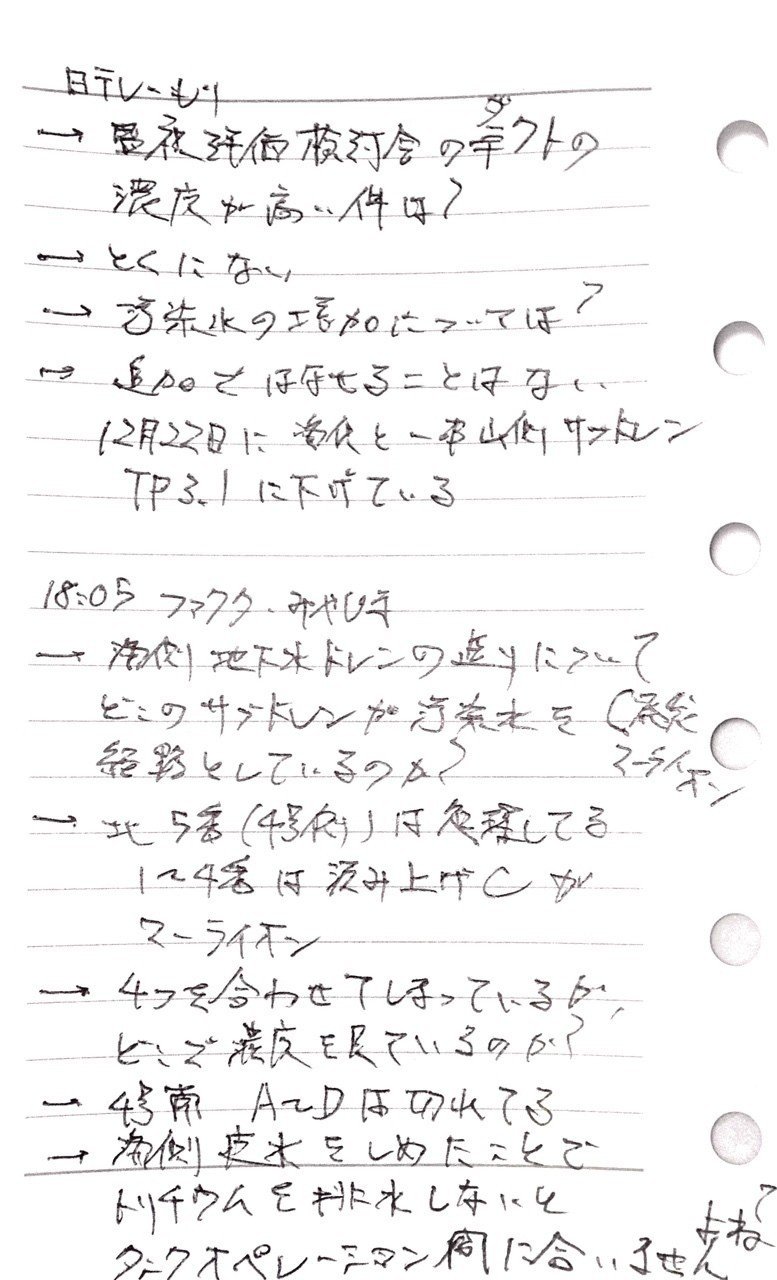 日テレーもり
→ 監視評価検討会のダクトの
濃度が高い件は?
→ とくにない
→ 汚染水の増加については?
→ 追加ではなせることはない
12月22日に 山側サブドレン
TP3.1に下げている
18:05 ファクタ・みやじま
→ 海側地下水ドレンの について
どこのサブドレンが汚染水を
経路としているのか?
マーライオン
→ 北5番(4号側)は してる
1〜4番は汲み上げ Cが
マーライオン
→ 4つを合わせてしまっているが、
どこで濃度を見ているのか?
→ 4号南 A〜Dは切れてる
→ 海側遮水をしめたことで
トリチウムを排水しないと
タンクオペレーション間に合いませんよね?